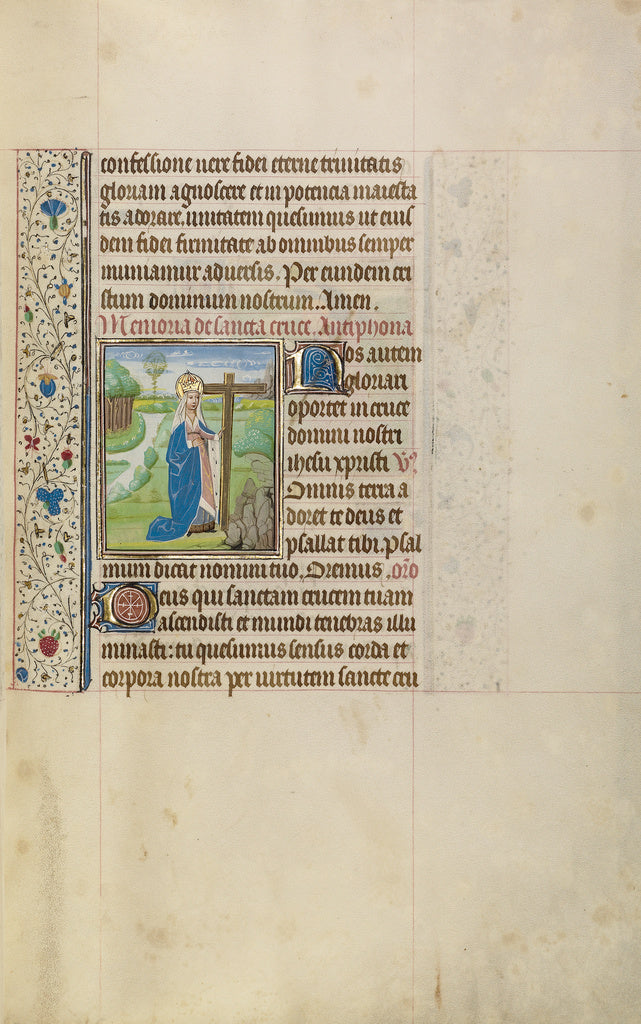 confessione uere fidei eterne trinitatis
gloriam agnoscere et in potencia maiesta
tis adorare. unitatem quesumus ut eius
dem fidei firmitate ab omnibus semper
muniamur aduersis. Per eundem cri
stum dominum nostrum. Amen.
Memoria de sancta cruce. Antiphona
Nos autem
gloriari
oportet in cruce
domini nostri
ihesu xpristi V̄s
Omnis terra a
doret te deus et
psallat tibi. Psal
mum dicat nomini tuo. Oremus. oro̅
Deus qui sanctam crucem tuam
ascendisti et mundi tenebras illu
minasti: tu quesumus sensus corda et
corpora nostra per uirtutem sancte cru